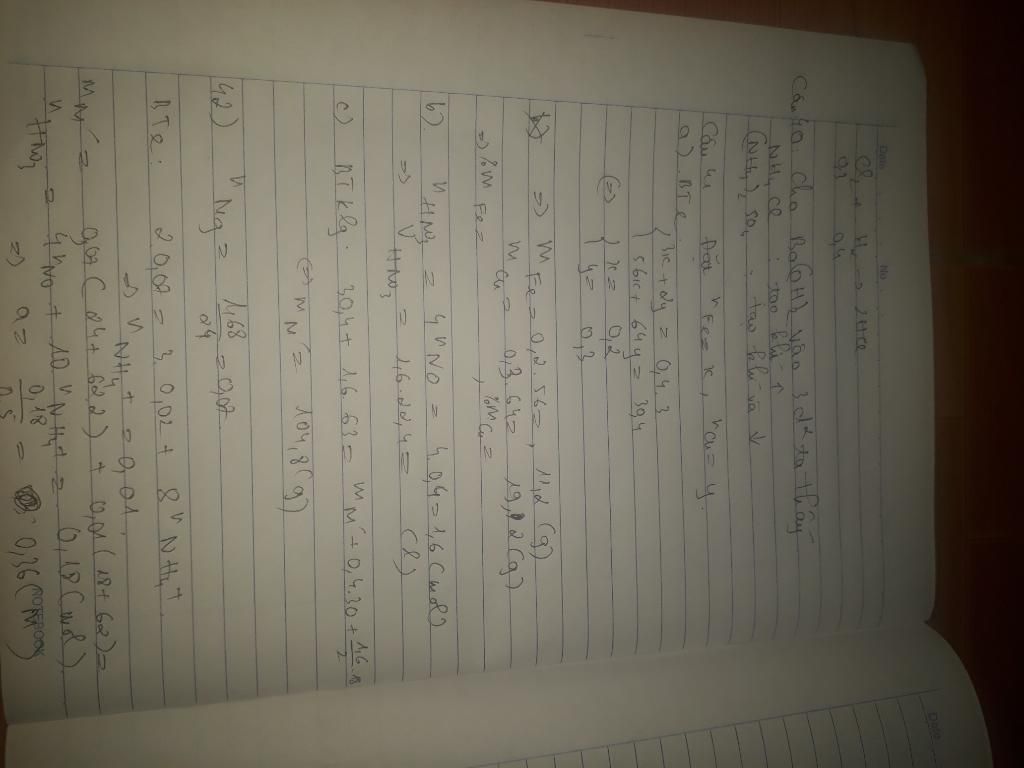 Date No.
Cl2 + H2 -> 2HCl
0,1 0,1
Câu 40 cho Ba(OH)2 vào 3 d² ta thấy
NH4Cl : tạo khí ↑
(NH4)2 SO4 : tạo khí và ↓
Câu 41 Đặt nFe = x, nCu = y.
a) BTe.
{ 3x + 2y = 0,4.3
56x + 64y = 30,4
(=) { x = 0,2
y = 0,3
=) m Fe = 0,2.56 = 11,2 (g)
m Cu = 0,3.64 = 19,2 (g)
=) %m Fe = , %m Cu =
b) n HNO3 = 4 n NO = 4.0,4 = 1,6 (mol)
=) V HNO3 = 1,6.22,4 = (l)
c) BTklg. 30,4 + 1,6.63 = m m' + 0,4.30 + 1,6/2 .18
(=) m m' = 104,8 (g)
42) n Mg = 1,68/24 = 0,07
BTe: 2.0,07 = 3.0,02 + 8 n NH4+
=) n NH4+ = 0,01
m m' = 0,07 (24 + 62.2) + 0,01 (18 + 62) =
n HNO3 = 4 n NO + 10 n NH4+ = 0,18 (mol)
=) a = 0,18/0,5 = 0,36 (M)
NOTEBOOK
Date